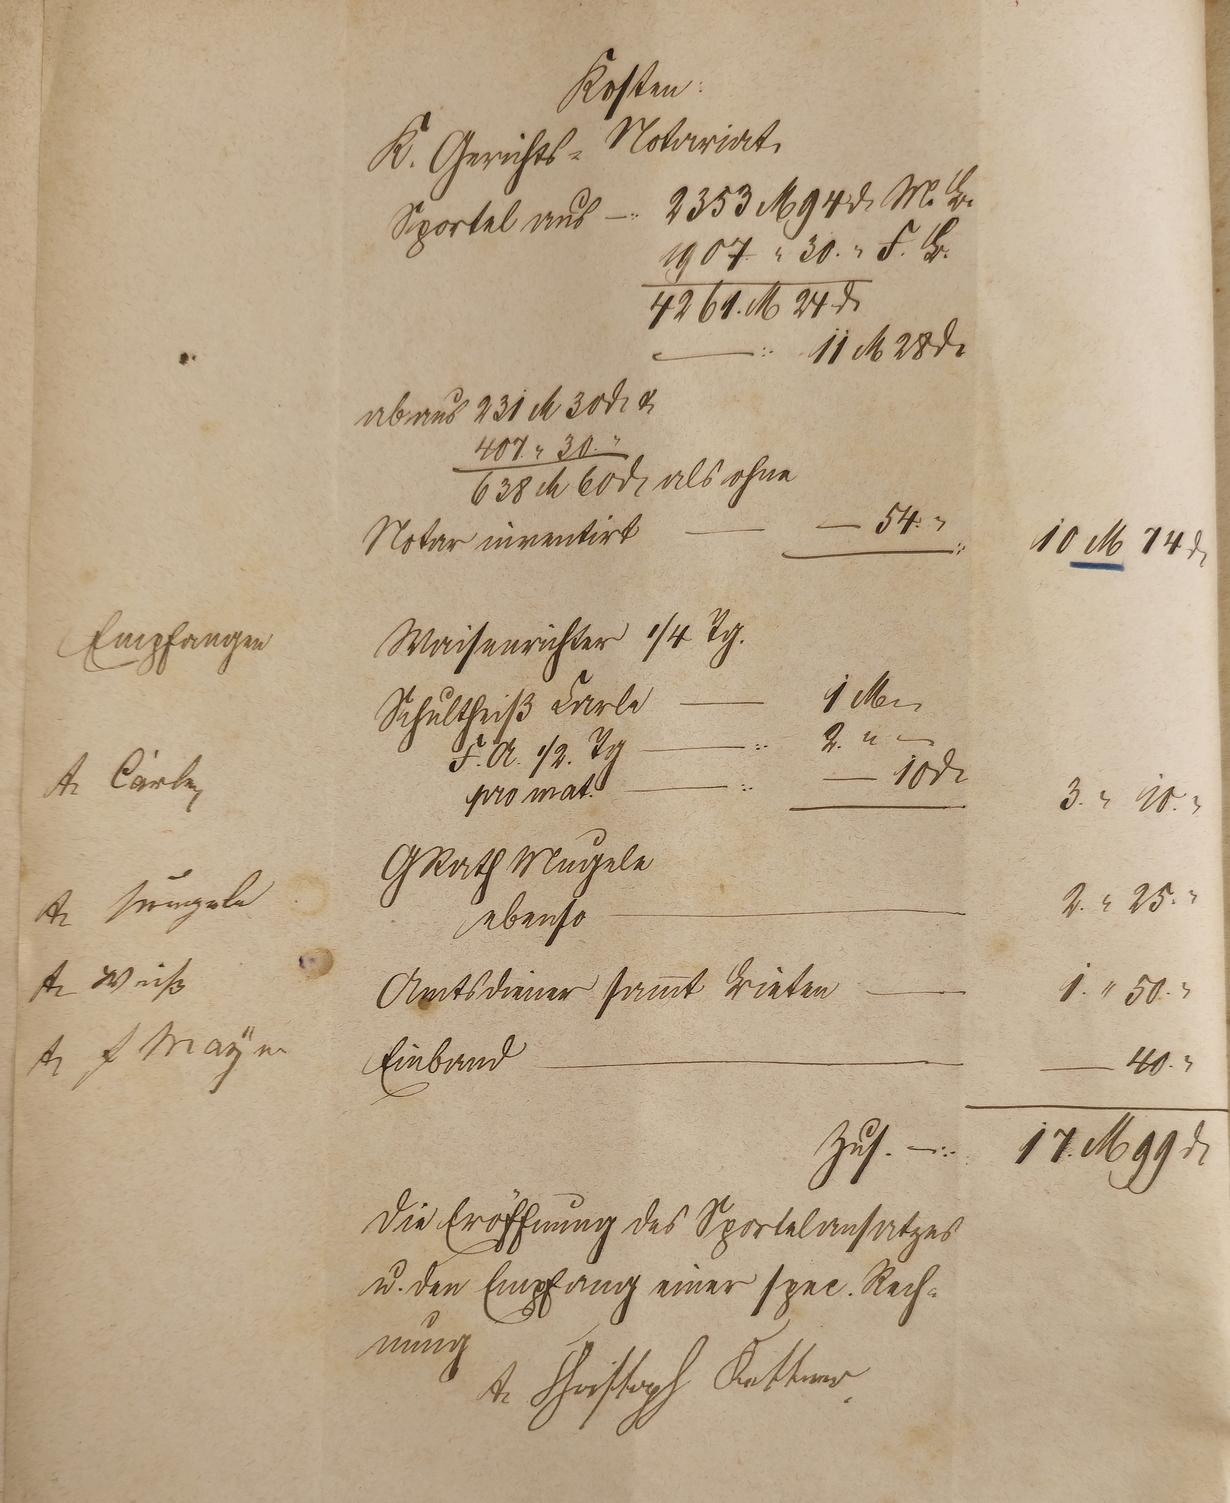 Kosten:
K. Gerichts-Notariat.
Sportel aus —: 2353 M 94 d. M. B.
1907 " 30. " F. B.
4261. M 24 d.
—: 11 M 28 d.
ab aus 231 M 30 d. &
407. " 30. "
638 M 60 d. als ohne
Notar inventirt — — 54. " : 10 M 74 d.
Empfangen
Waisenrichter 1/4 Tg.
Schultheiß Carle — 1 M —
F. A. 1/2. Tg —: 2. " —
T. Carle
pro mat. —: — 10 d. 3. " 10. "
GRath Mugele
T. Mugele
ebenso — 2. " 25. "
T. Weiß Amtsdiener sammt Bieten — 1. " 50. "
T. J Mayer Einband — — 40. "
Zus. —: 17. M 99 d.
Die Eröffnung des Sportelansatzes
u. den Empfang einer spec. Rech-
nung
T. Christoph Kettner